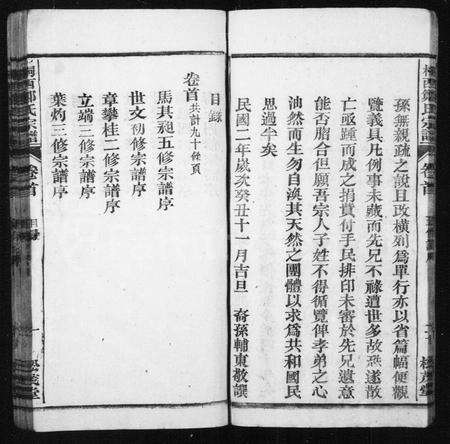 孫無親疏之說且改橫列爲單行亦以省篇幅便觀
覽義具凡例事未蕆而先兄不祿遭世多故恐遂散
亡亟踵而成之捐貲付手民排印未審於先兄遺意
能否脗合但願吾宗人子姓不得循覽俾孝弟之心
油然而生勿自渙其天然之團體以求爲共和國民
思過半矣
民國二年歲次癸丑十一月吉旦　裔孫輔東敬譔
目錄
卷首共計九十頁
馬其昶五修宗譜序
世文初修宗譜序
章攀桂二修宗譜序
立端三修宗譜序
葉灼三修宗譜序
卷首
目錄